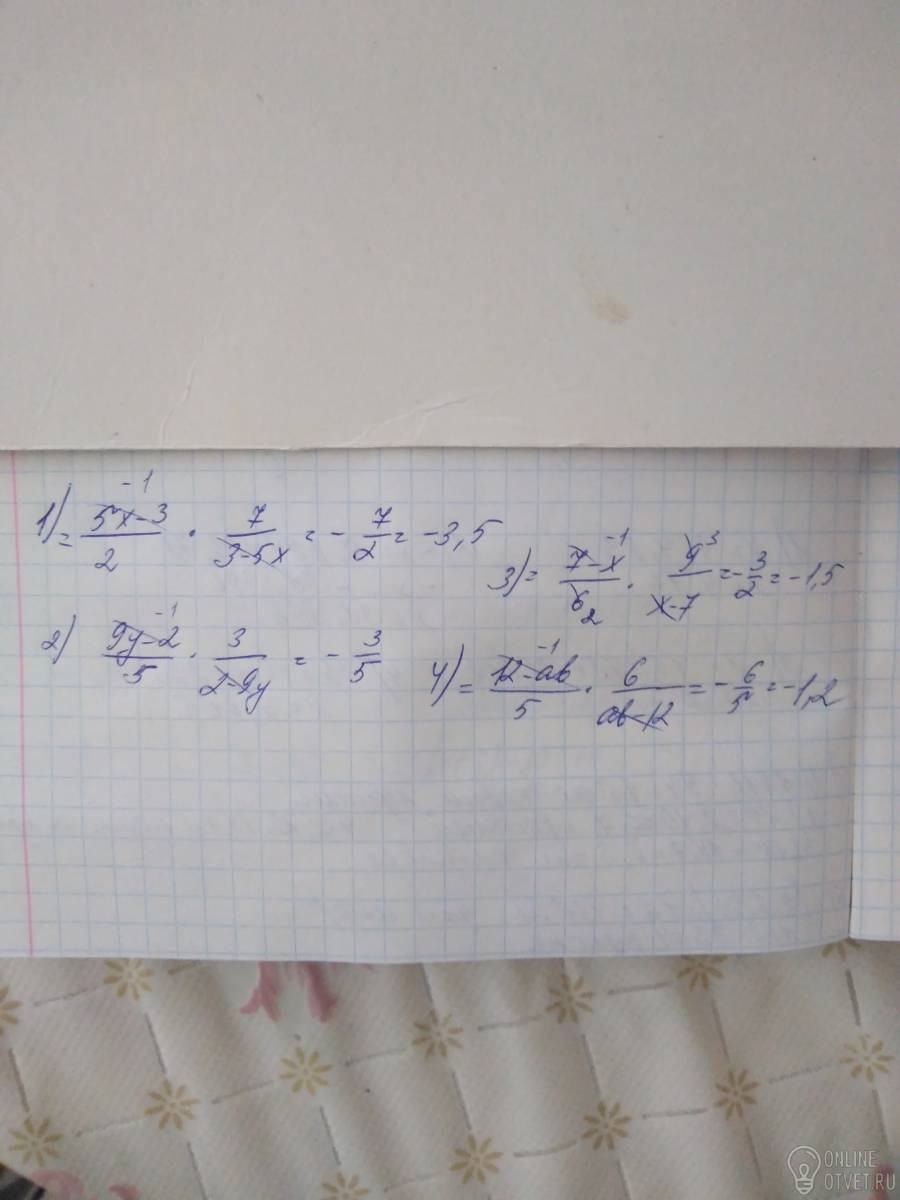 1) = \frac{5x-3}{2}^{-1} · \frac{7}{3-5x} = - \frac{7}{2} = -3,5
2) \frac{9y-2}{5}^{-1} · \frac{3}{2-9y} = - \frac{3}{5}
3) = \frac{7-x}{6}^{-1}_{2} · \frac{9}{x-7}^{3} = - \frac{3}{2} = -1,5
4) = \frac{12-ab}{5}^{-1} · \frac{6}{ab-12} = - \frac{6}{5} = -1,2
ONLINE
OTVET.RU